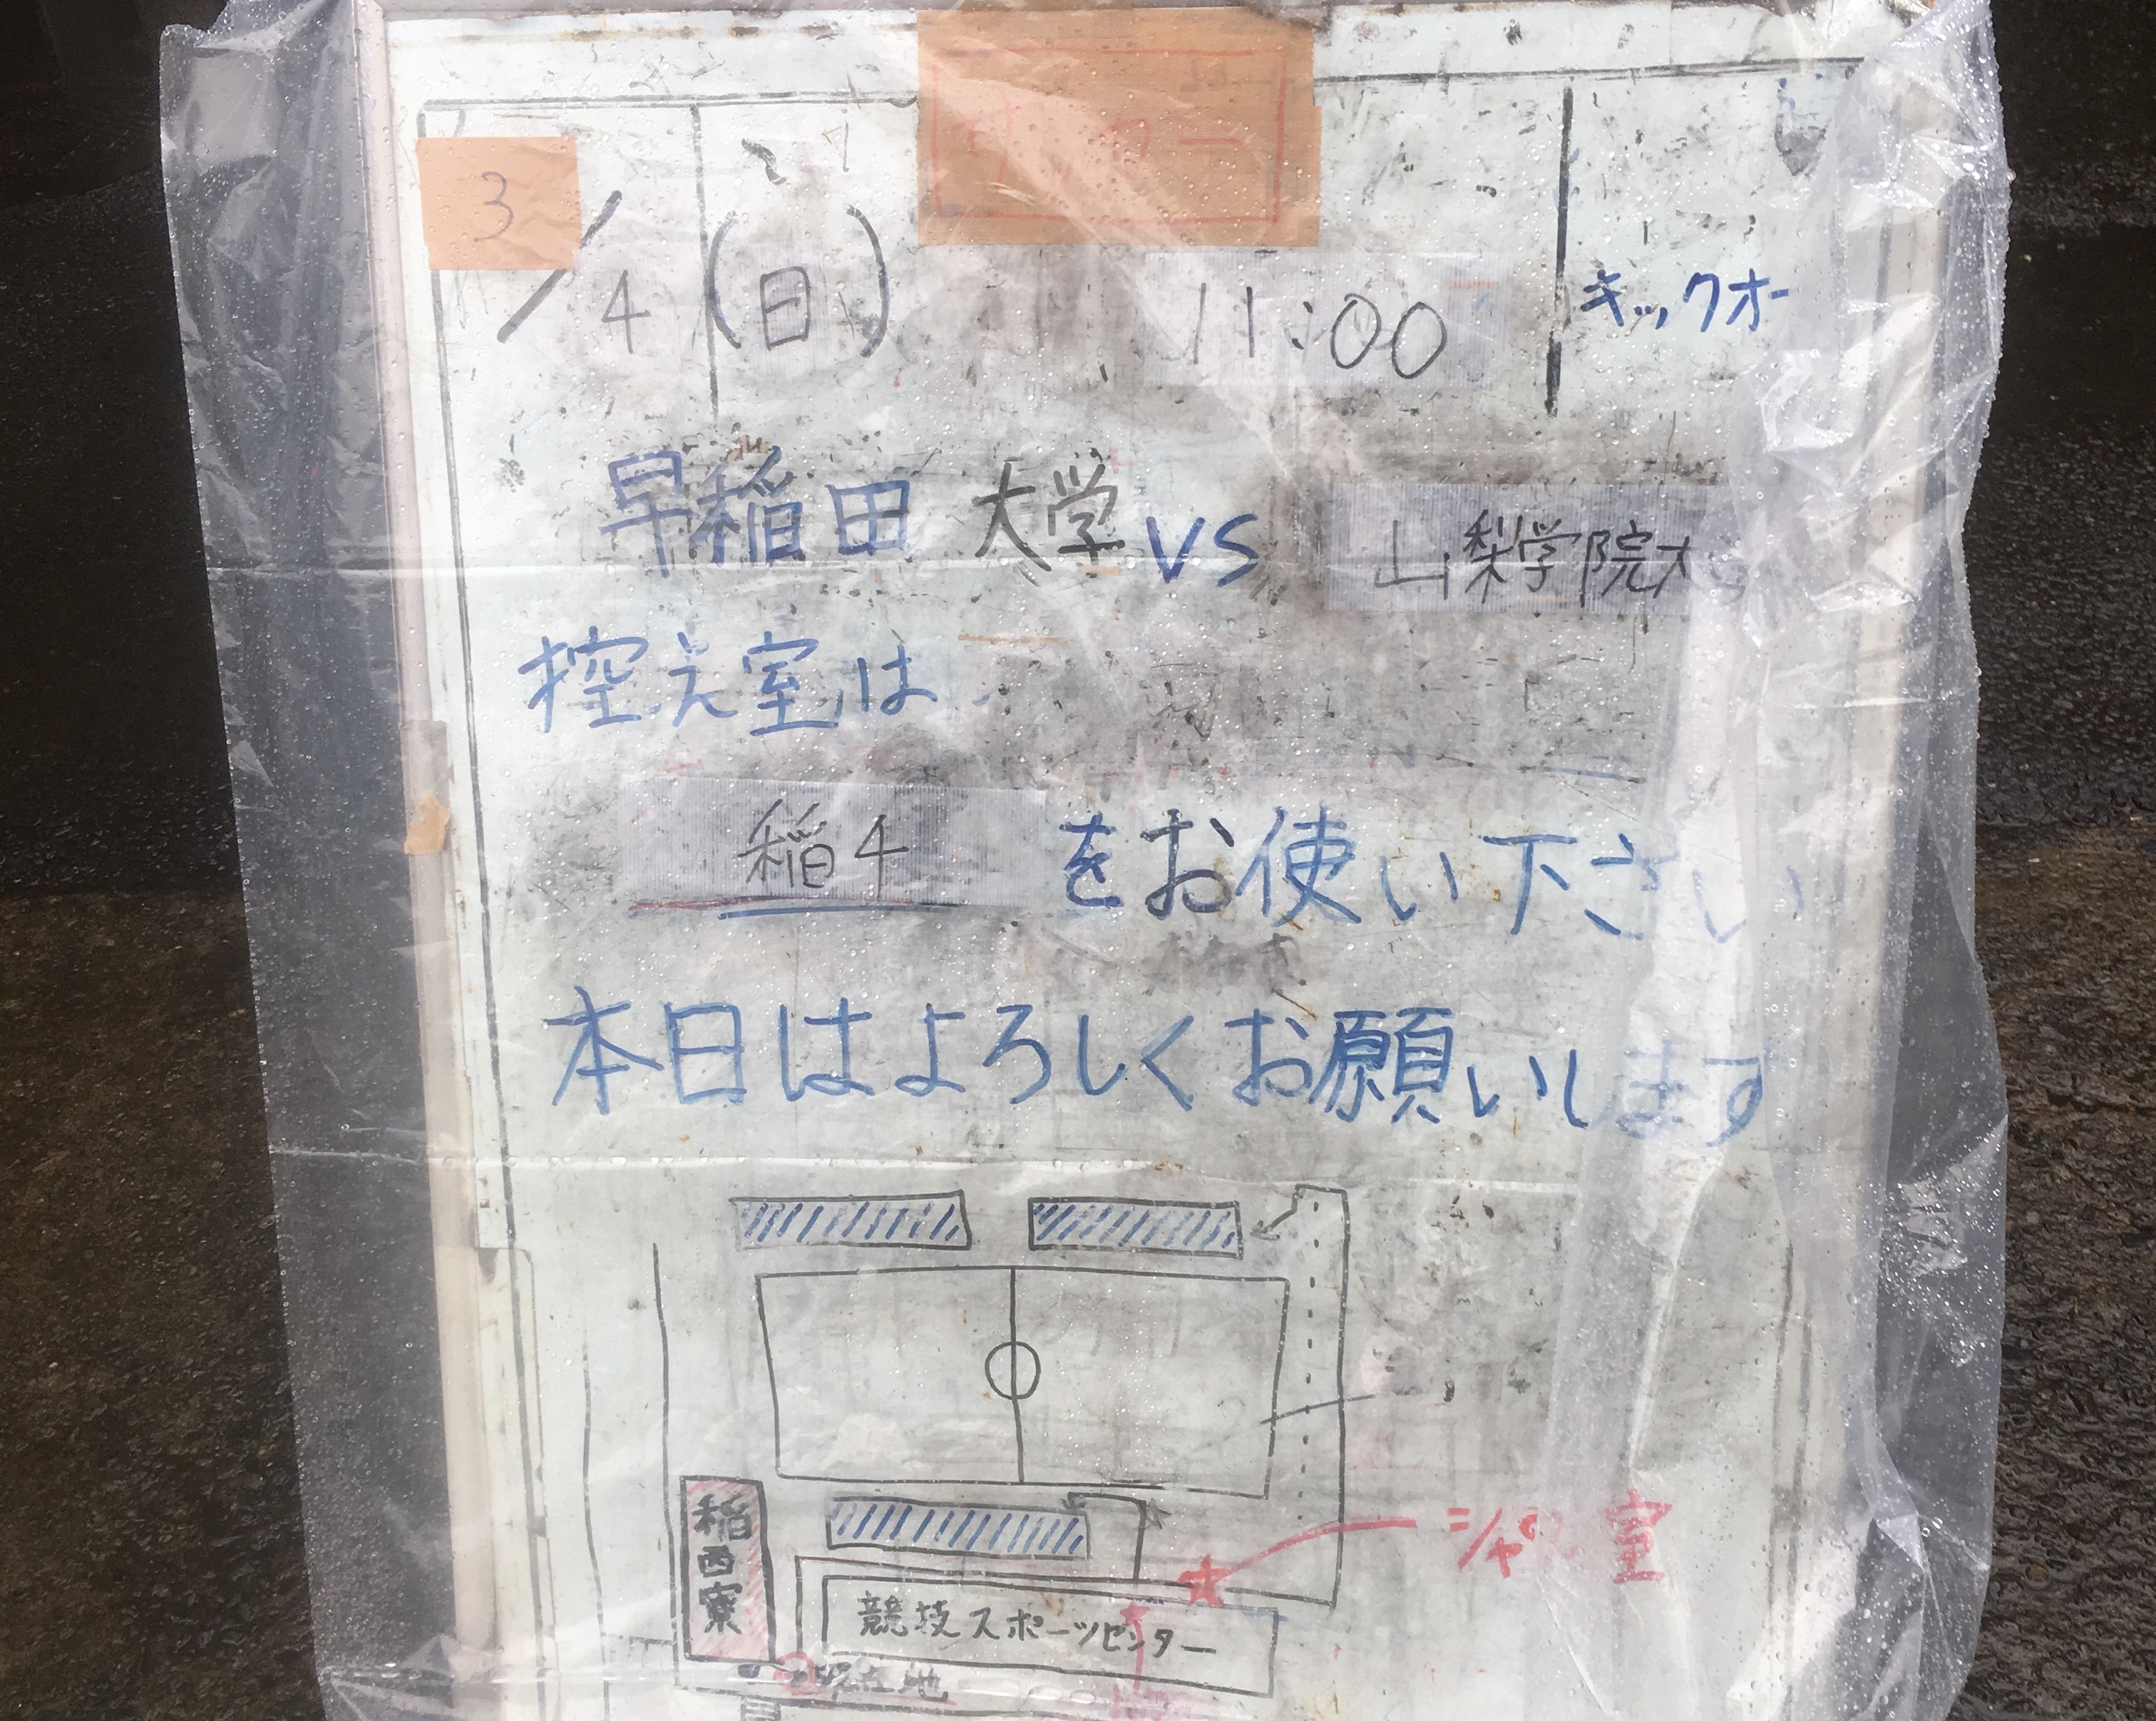 3/4(日) 11:00 キックオー
早稲田大学 vs 山梨学院大
控え室は
稲4 をお使い下さい
本日はよろしくお願いします
稲西寮
競技スポーツセンター
現在地